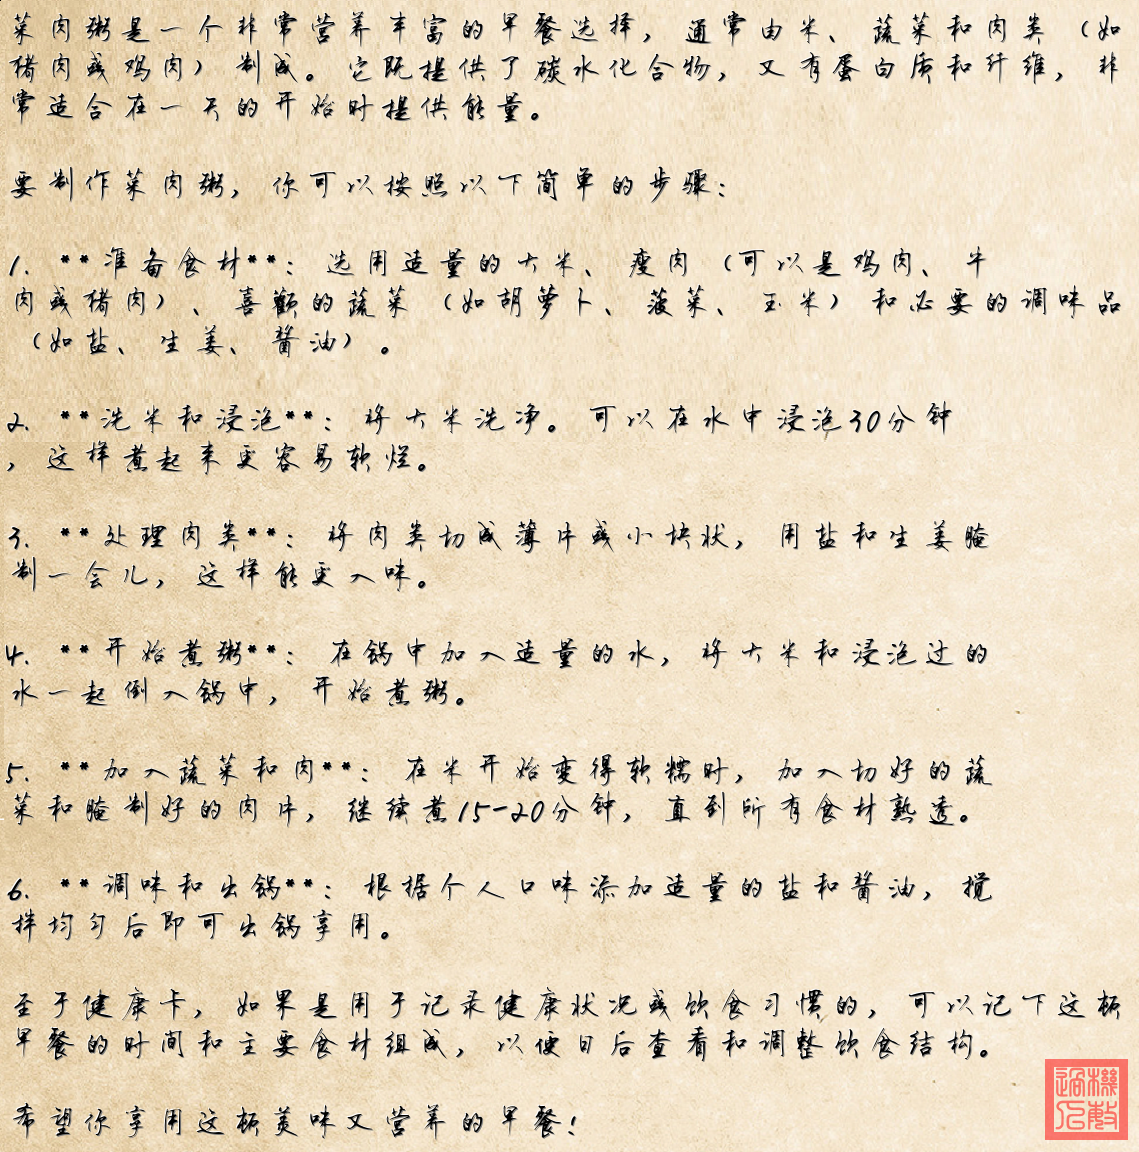 菜肉粥是一个非常营养丰富的早餐选择，通常由米、蔬菜和肉类（如
猪肉或鸡肉）制成。它既提供了碳水化合物，又有蛋白质和纤维，非
常适合在一天的开始时提供能量。
要制作菜肉粥，你可以按照以下简单的步骤：
1. **准备食材**：选用适量的大米、瘦肉（可以是鸡肉、牛
肉或猪肉）、喜欢的蔬菜（如胡萝卜、菠菜、玉米）和必要的调味品
（如盐、生姜、酱油）。
2. **洗米和浸泡**：将大米洗净。可以在水中浸泡30分钟
，这样煮起来更容易软烂。
3. **处理肉类**：将肉类切成薄片或小块状，用盐和生姜腌
制一会儿，这样能更入味。
4. **开始煮粥**：在锅中加入适量的水，将大米和浸泡过的
水一起倒入锅中，开始煮粥。
5. **加入蔬菜和肉**：在米开始变得软糯时，加入切好的蔬
菜和腌制好的肉片，继续煮15-20分钟，直到所有食材熟透。
6. **调味和出锅**：根据个人口味添加适量的盐和酱油，搅
拌均匀后即可出锅享用。
至于健康卡，如果是用于记录健康状况或饮食习惯的，可以记下这顿
早餐的时间和主要食材组成，以便日后查看和调整饮食结构。
希望你享用这顿美味又营养的早餐！